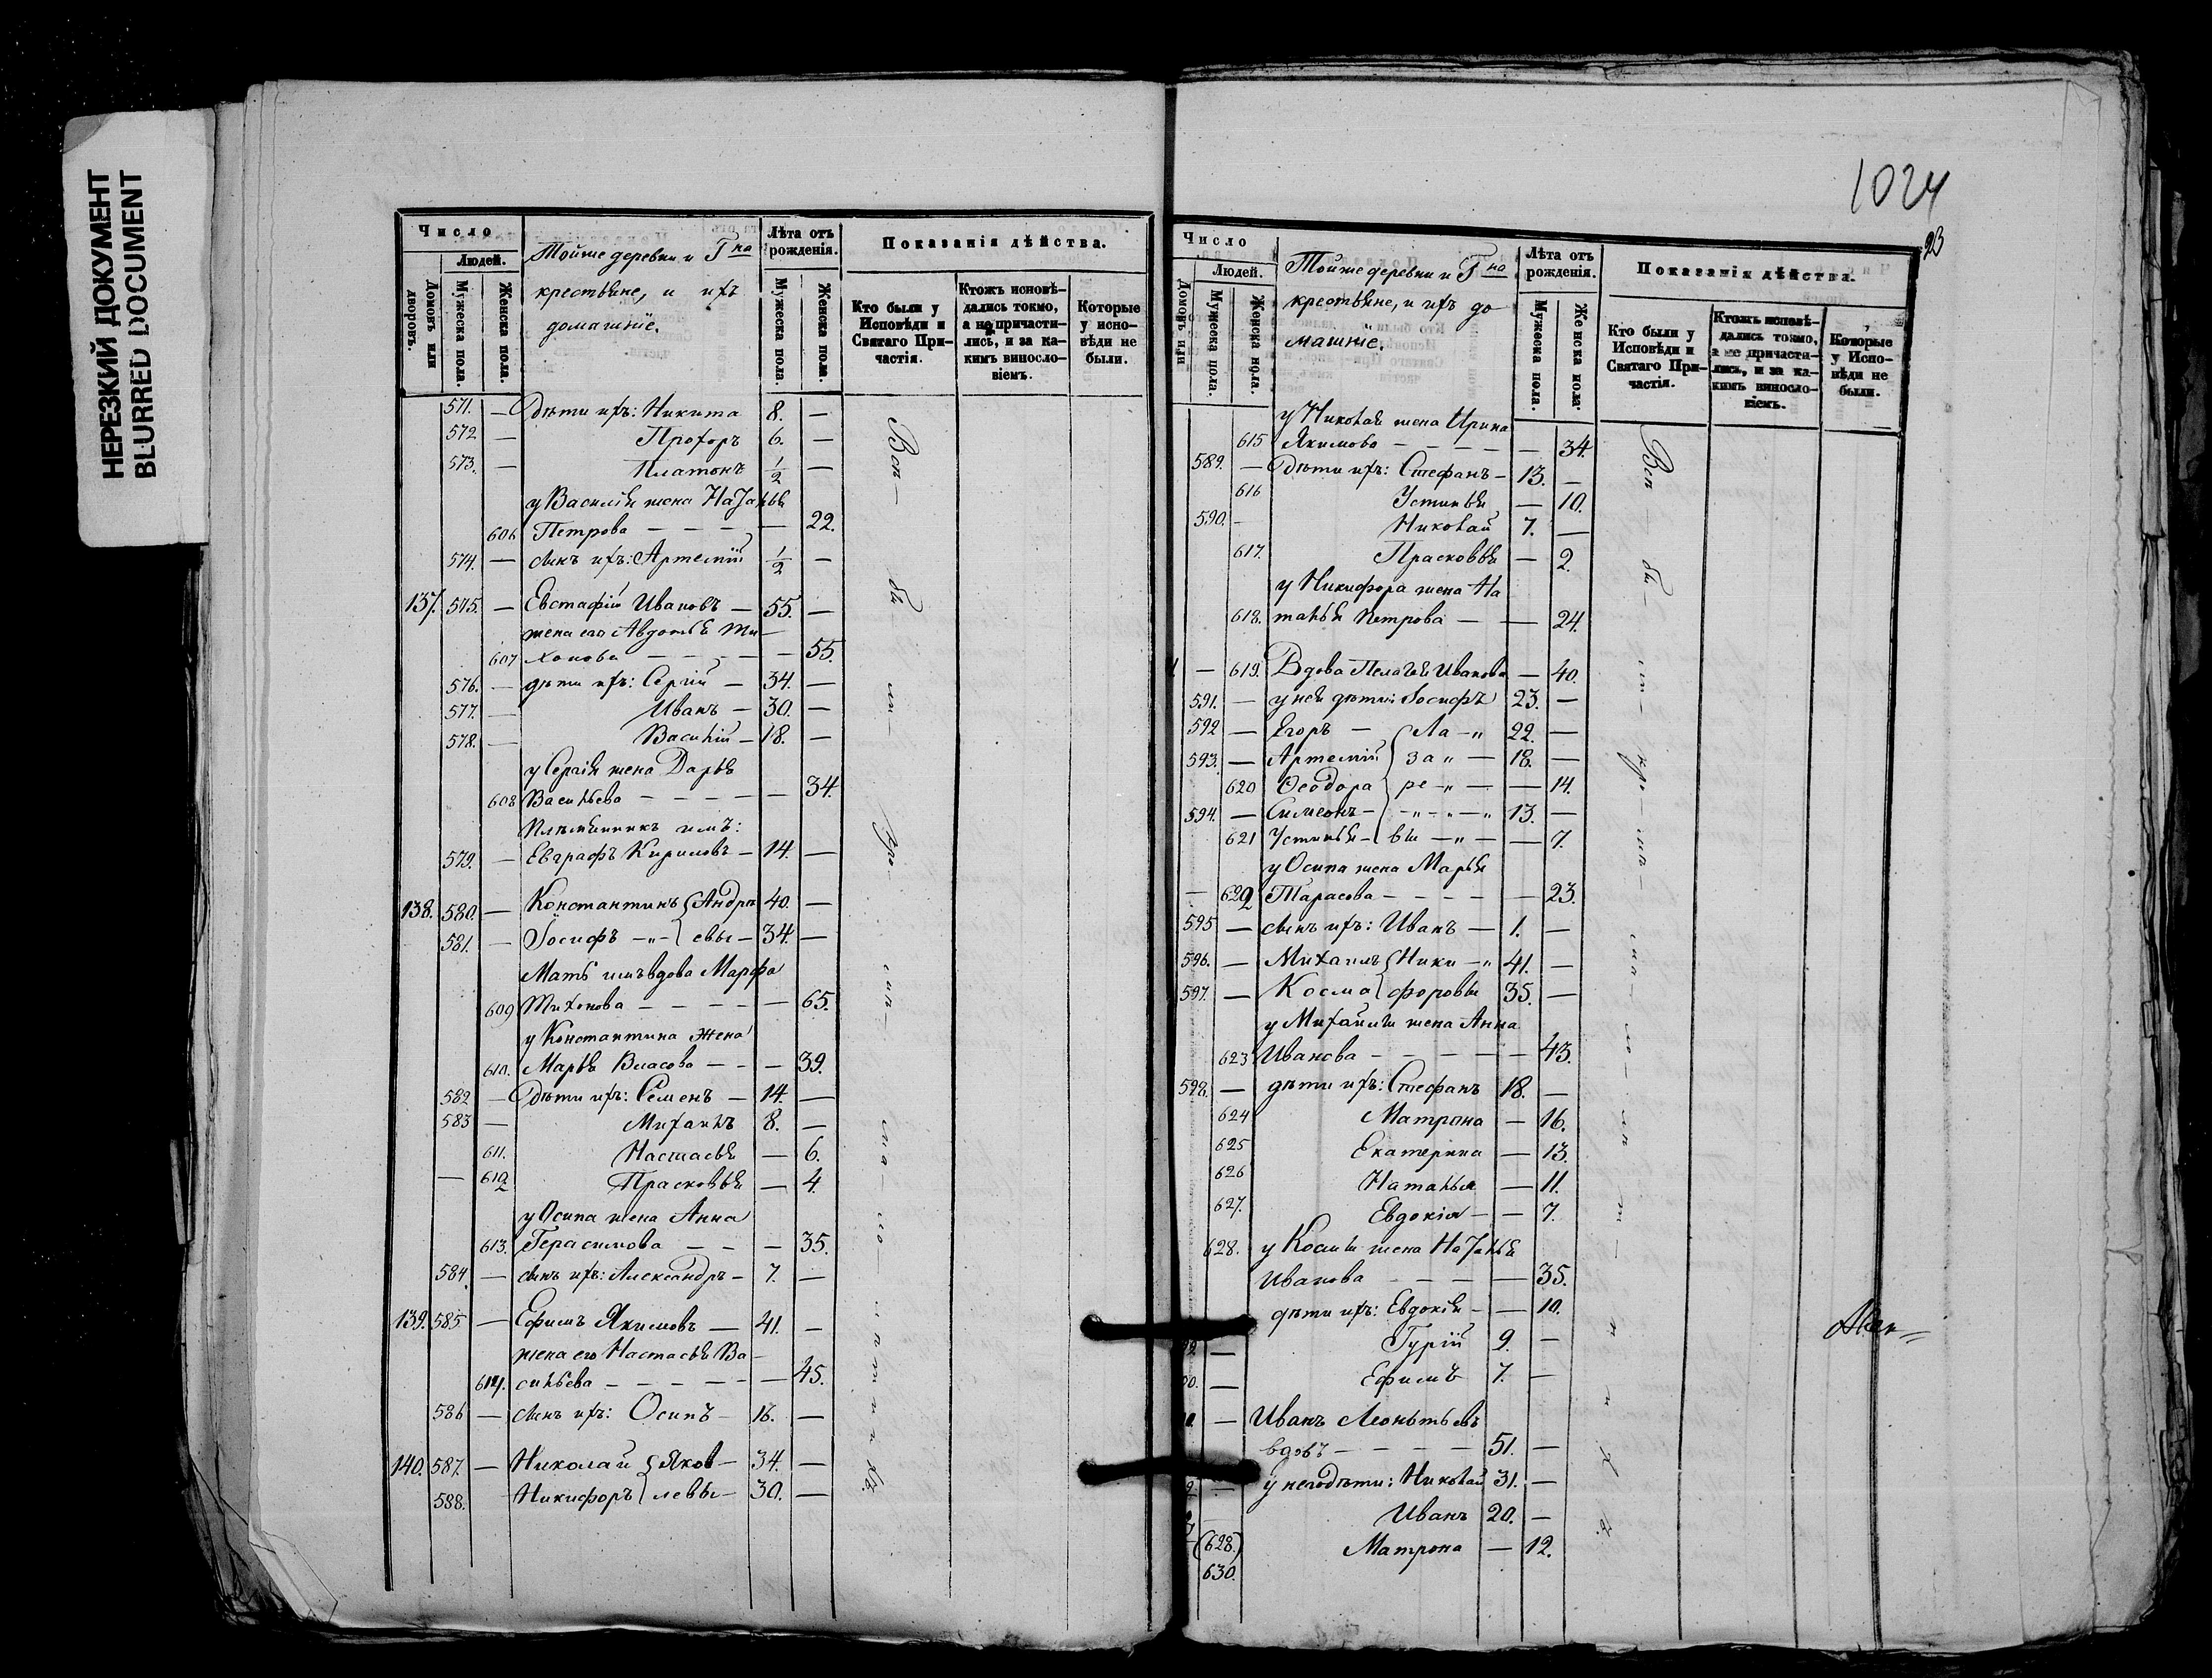 НЕРЕЗКИЙ ДОКУМЕНТ
BLURRED DOCUMENT
Число
Людей.
Домовъ или дворовъ.
Мужеска пола.
Женска пола.
Тойже деревни и Гна
крестьяне, и ихъ
домашніе.
Лѣта отъ рожденія.
Мужеска пола.
Женска пола.
Показанія дѣйства.
Кто были у Исповѣди и Святаго Причастія.
Ктожъ исповѣдались токмо, а не причастились, и за какимъ винословіемъ.
Которые у исповѣди не были.
571. — Дѣти ихъ: Никита 8. —
572 — Прохоръ 6. —
573. — Платонъ 1/2 —
у Василія жена Наталья
606 Петрова — — — — 22.
574. — сынъ ихъ: Артемій 1/2 —
137. 575. — Евстафій Ивановъ — 55. —
жена его Авдотья Ти—
607 хонова — — — — — 55.
576. — дѣти ихъ: Сергій — 34. —
577. — Иванъ — 30. —
578. — Василій — 18. —
у Сергія жена Дарья
608 Васильева — — — — — 34.
Племянникъ имъ:
579. — Евграфъ Кириловъ — 14. —
138. 580. — Константинъ { Андре 40. —
581. — Іосифъ —"— { евы — 34. —
Мать имъ вдова Марфа
609 Тихонова — — — — — 65.
у Константина жена
610. Марья Власова — — — 39.
582 — Дѣти ихъ: Семенъ — 14. —
583 — Михаилъ 8. —
611. Настасья — 6.
— 612 Прасковья — 4.
у Осипа жена Анна
613. Герасимова — — — 35.
584. — сынъ ихъ: Александръ — 7. —
139. 585. — Ефимъ Якимовъ — 41. —
жена его Настасья Ва—
614. сильева — — — — — — 45.
586 — сынъ ихъ: Осипъ — 16. —
140. 587. — Николай { Яков — 34. —
588. Никифоръ { левы — 30. —
1024
23
Число
Людей.
Домовъ или
Мужеска пола.
Женска пола.
Тойже деревни и Гна
крестьяне, и ихъ до
машніе.
Лѣта отъ рожденія.
Мужеска пола.
Женска пола.
Показанія дѣйства.
Кто были у Исповѣди и Святаго Причастія.
Ктожъ исповѣдались токмо, а не причастились, и за какимъ винословіемъ.
Которые у Исповѣди не были.
у Николая жена Ирина
615 Якимова — — — — — 34.
589. — Дѣти ихъ: Стефанъ — 13. —
616 Устинья — 10.
590. — Николай 7. —
617. Прасковья — 2.
у Никифора жена На
618. талья Петрова — — 24.
— 619. Вдова Пелагея Иванова — 40.
591. — у нея дѣти: Іосифъ 23. —
592 — Егоръ — { Ла —" 22. —
593. — Артемій { за " — 18. —
620 Ѳеодора { ре —" — — 14.
594. — Симеонъ — { —"—"—" 13. —
621 Устинья — { вы —"— — 7.
у Осипа жена Марья
— 622 Тарасова — — — — — 23.
595 — сынъ ихъ: Иванъ — 1. —
596. — Михаилъ { Ники —" 41. —
597. — Косма { форовы 35. —
у Михаила жена Анна
623 Иванова — — — — — — 43.
598. — дѣти ихъ: Стефанъ 18. —
624 Матрона — 16.
625 Екатерина — 13.
626 Наталья — 11.
627. Евдокія — — 7.
628. у Космы жена Наталья
Иванова — — — — 35.
дѣти ихъ: Евдокія — — 10.
— Гурій 9. —
— Ефимъ 7. —
— Иванъ Леонтьевъ
вдовъ — — — — — 51. —
— у него дѣти: Николай 31. —
— Иванъ 20. —
(628.) Матрона — 12.
630.